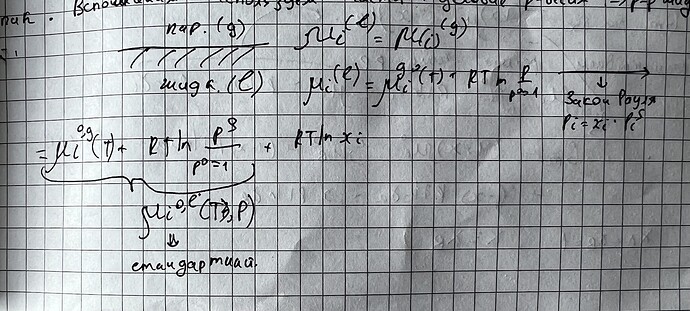 пар. (g) μi^(l) = μi^(g)
жидк. (l) μi^(l) = μi^g,0(T) + RT ln P/p⁰=1 → Закон Рауля
Pi = xi · Pi^S
= μi^0,g(T) + RT ln P^S/p⁰=1 + RT ln xi
μi^0,l (T, P)
↓
стандартный.